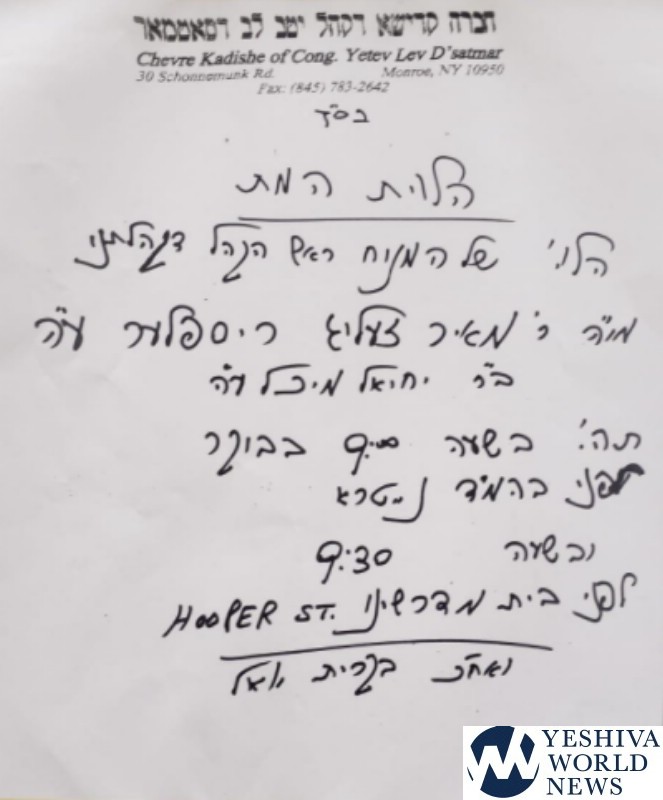 חברה קדישא דקהל יטב לב דסאטמאר
Chevre Kadishe of Cong. Yetev Lev D'satmar
30 Schonnemunk Rd. Monroe, NY 10950
Fax: (845) 783-2642
בס"ד
הלוית המת
הלוי' של המנוח ראש הקהל דקהלתינו
מוה"ר ר' מאיר זעליג ריספלער ע"ה
ב"ר יחיאל מיכל ע"ה
תהי' בשעה 9:00 בבוקר
לפני ביהמ"ד נייטרא
ובשעה 9:30
לפני בית מדרשינו HOOPER ST.
ואח"כ בקרית יואל
YESHIVA
WORLD
NEWS